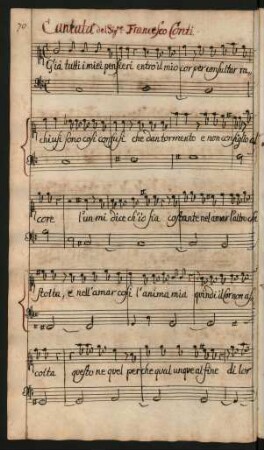 70
Cantata del Sigr. Francesco Conti
Già tutti i miei pensieri entro il mio cor per consultar ra,
chiusi sono così confusi che dan tormento e non consiglio al
core l'un mi dice ch'io sia costante nel amar l'altro che
stolta, è nell'amar così l'anima mia quindi il cor non as,
colta questo ne quel perche qual unque al fine di lor